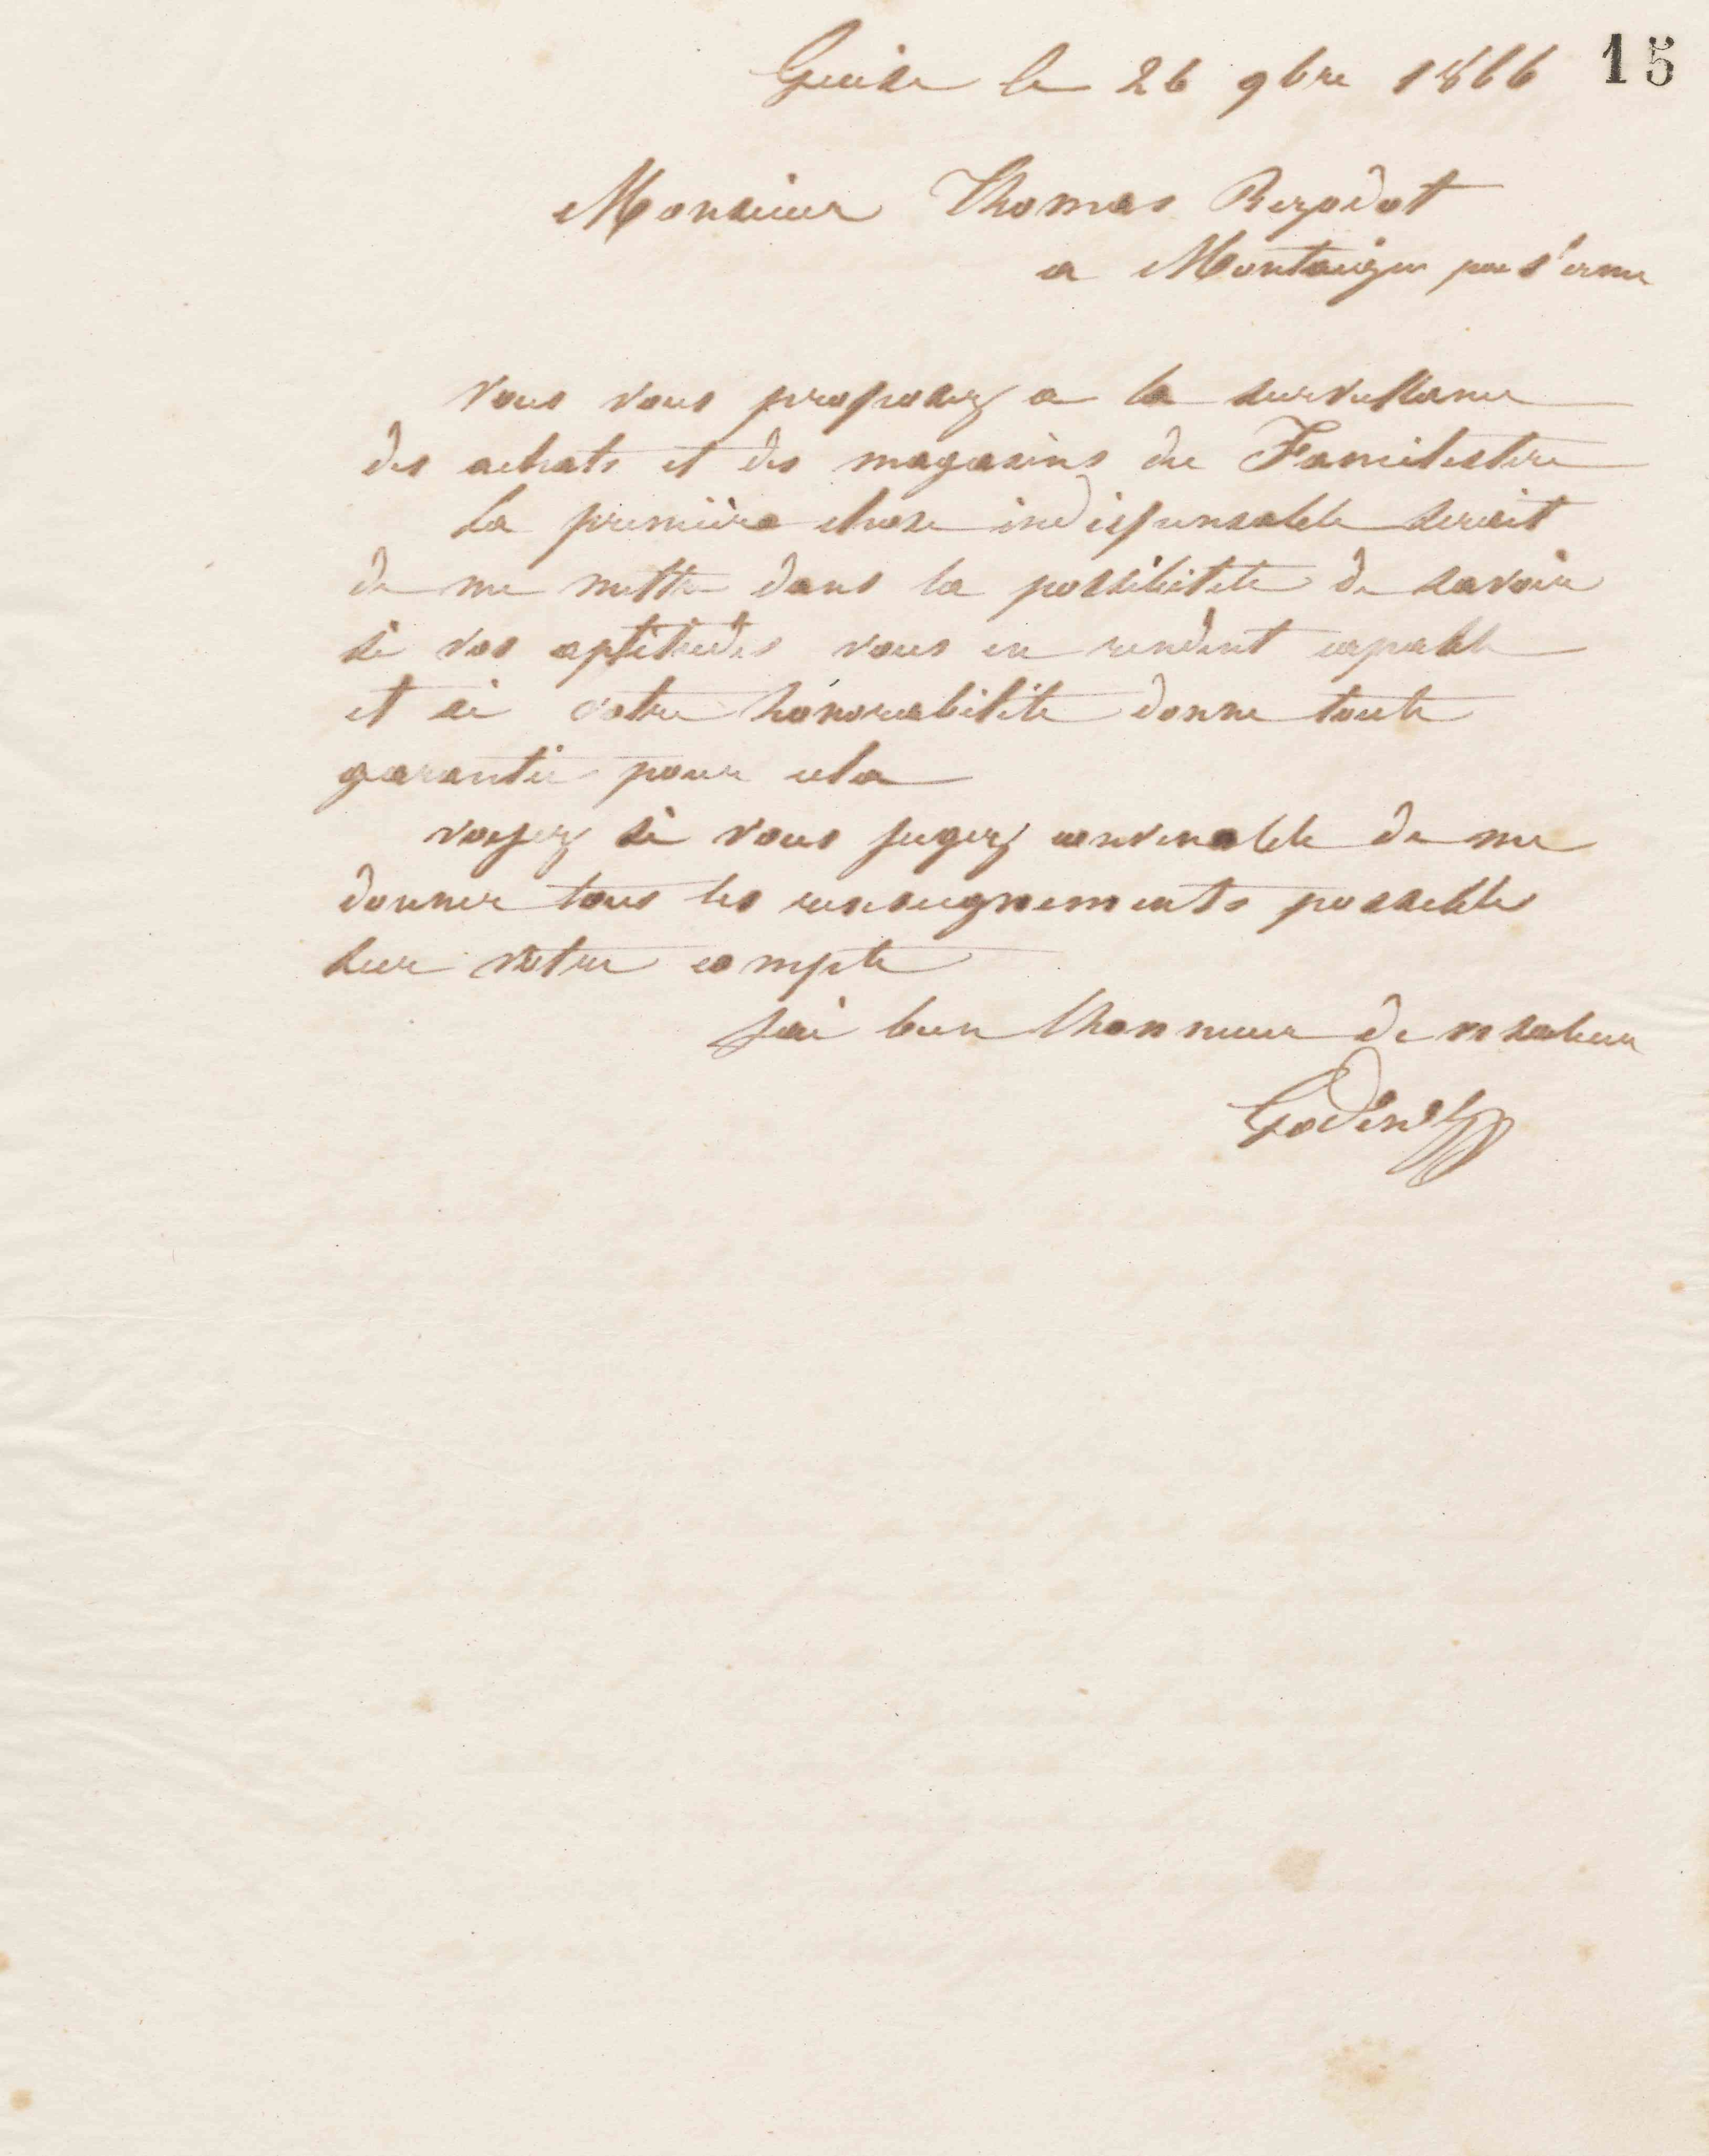 15
Guise le 26 9bre 1866
Monsieur Thomas
a Montaigu par St erme
Vous vous proposez a la surveillance
des achats et des magasins du Familistere
La première chose indispensable serait
de me mettre dans la possibilité de savoir
si vos aptitudes vous en rendent capable
et si votre honorabilité donne toute
garantie pour cela
voyez si vous jugez convenable de me
donner tous les renseignements possible
sur votre compte
Jai bien lhonneur de vs saluer
Godin